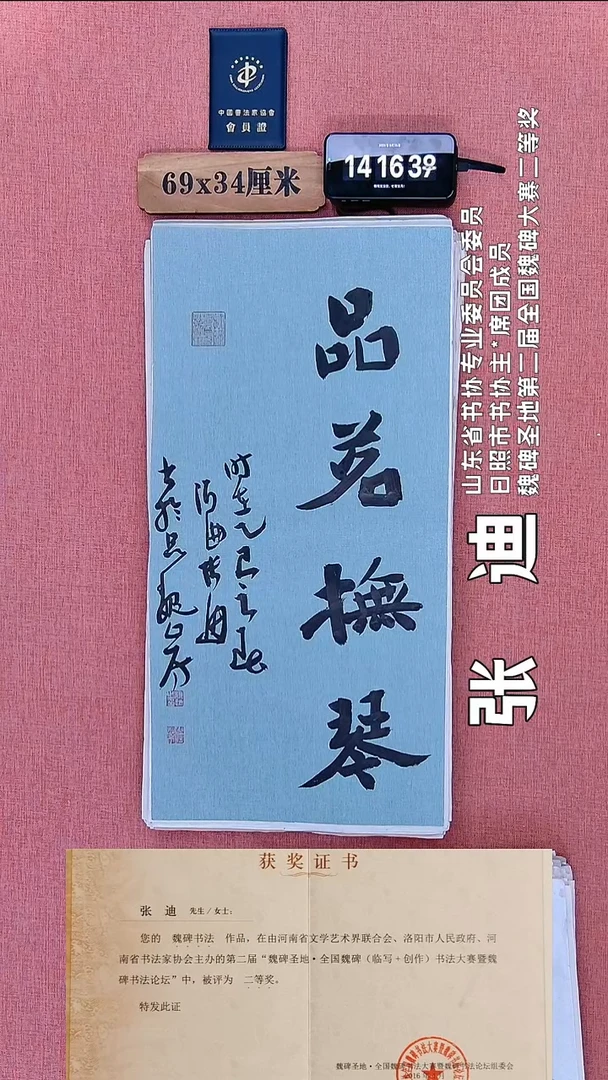 中國書法家協會
會員證
69x34厘米
14 16 39
品茗撫琴
时在乙巳之春
张迪
山东省书协专业委员会委员
日照市书协主*席团成员
魏碑圣地第二届全国魏碑大赛二等奖
张 迪
获奖证书
张 迪 先生/女士:
您的 魏碑书法 作品,在由河南省文学艺术界联合会、洛阳市人民政府、河
南省书法家协会主办的第二届“魏碑圣地·全国魏碑(临写+创作)书法大赛暨魏
碑书法论坛”中,被评为 二等奖。
特发此证
魏碑圣地·全国魏碑书法大赛暨魏碑书法论坛组委会